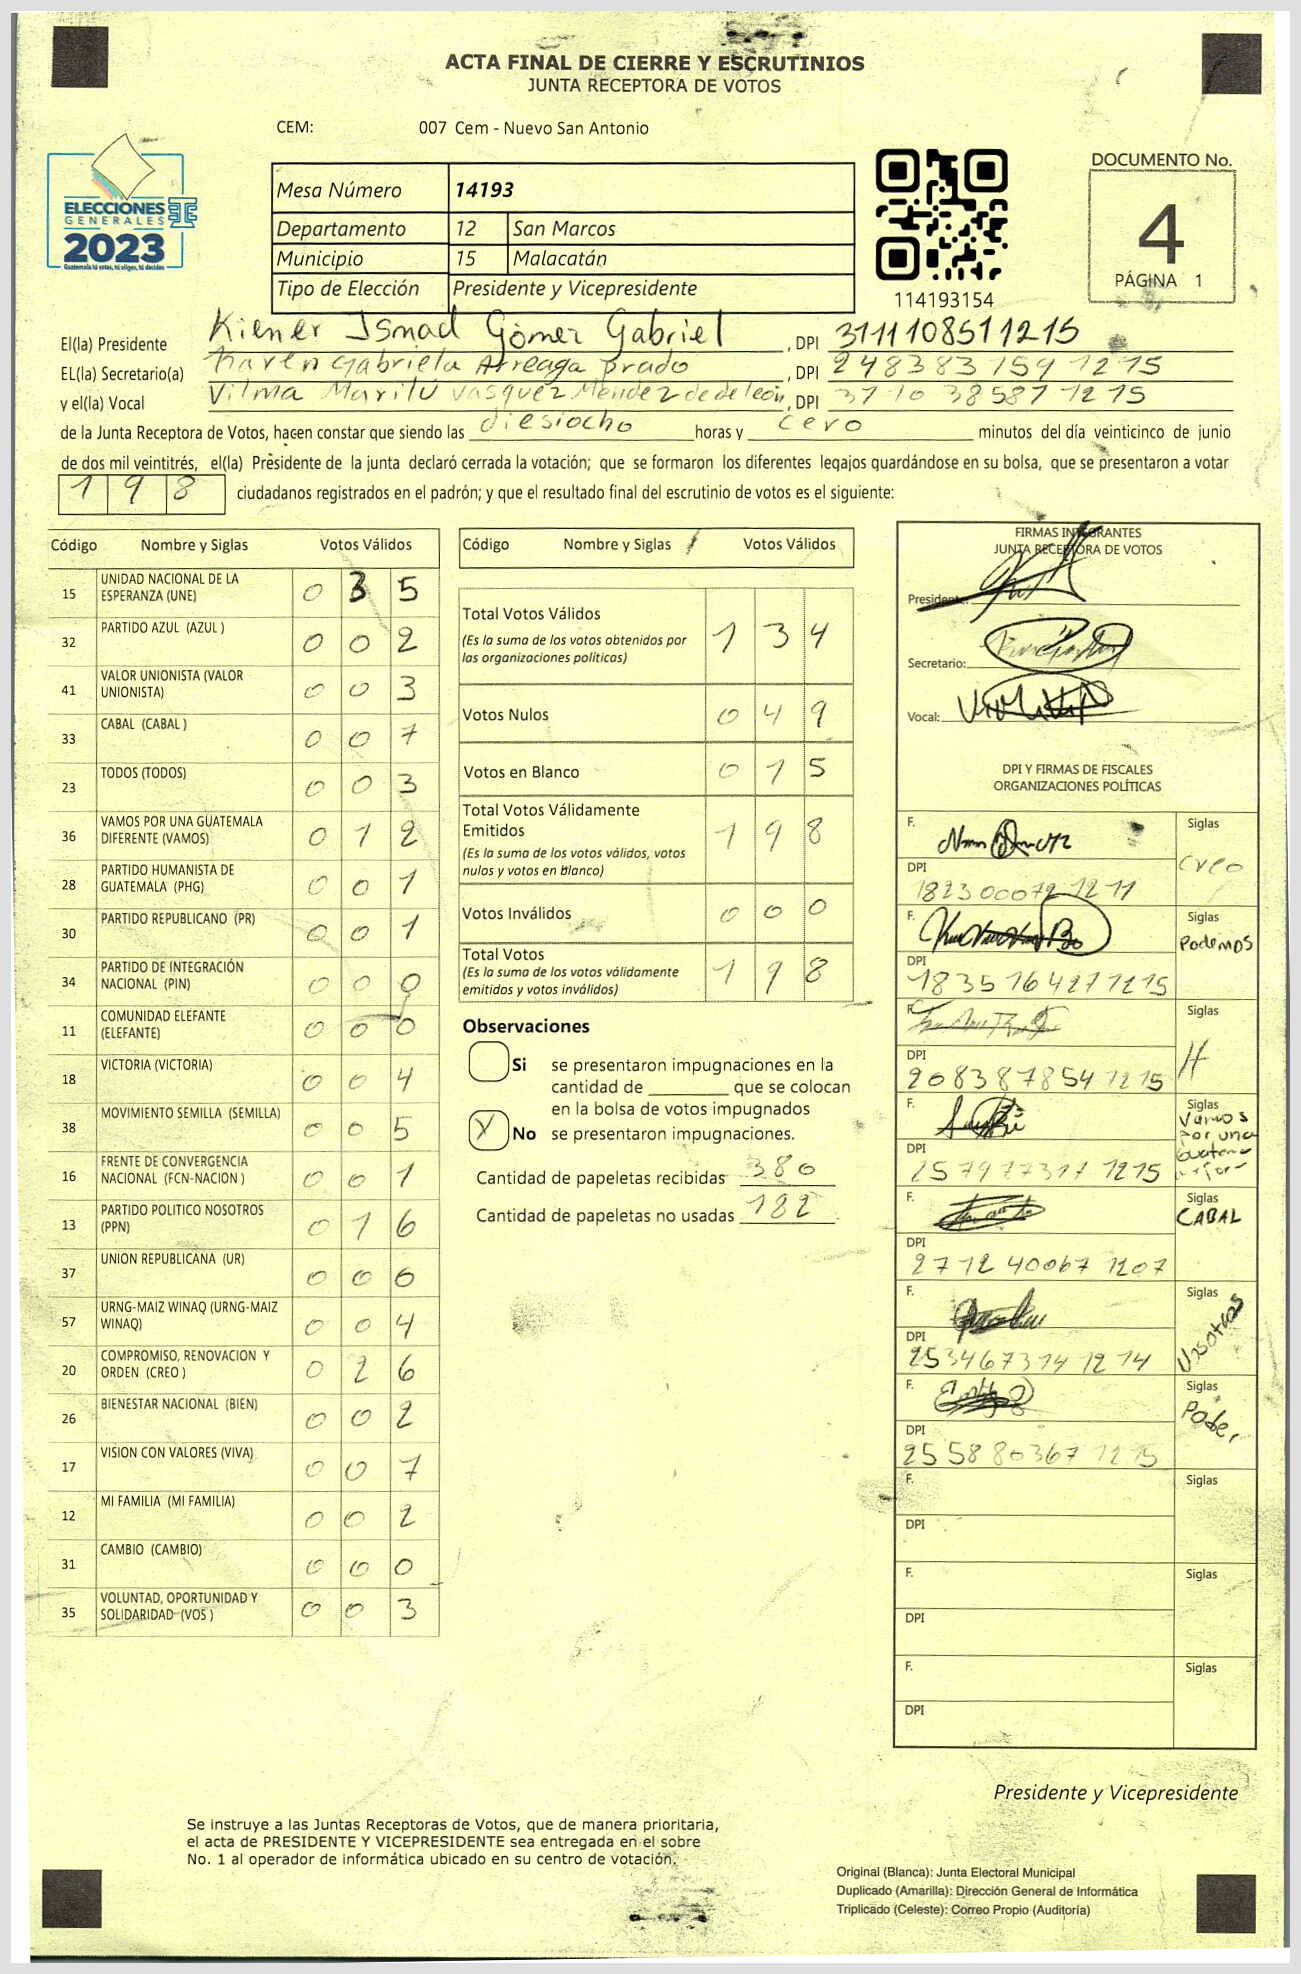 ACTA FINAL DE CIERRE Y ESCRUTINIOS
JUNTA RECEPTORA DE VOTOS
CEM: 007 Cem - Nuevo San Antonio
ELECCIONES
GENERALES
2023
Guatemala tú votas, tú eliges, tú decides
Mesa Número 14193
Departamento 12 San Marcos
Municipio 15 Malacatán
Tipo de Elección Presidente y Vicepresidente
114193154
DOCUMENTO No.
4
PÁGINA 1
El(la) Presidente Kiener Ismael Gómez Gabriel, DPI 3111108511215
EL(la) Secretario(a) Karen Gabriela Arreaga prado, DPI 248383159 1215
y el(la) Vocal Vilma Marilú Vasquez Méndez de de león, DPI 3710 38587 1215
de la Junta Receptora de Votos, hacen constar que siendo las diesiocho horas y cero minutos del día veinticinco de junio
de dos mil veintitrés, el(la) Presidente de la junta declaró cerrada la votación; que se formaron los diferentes legajos guardándose en su bolsa, que se presentaron a votar
198 ciudadanos registrados en el padrón; y que el resultado final del escrutinio de votos es el siguiente:
Código Nombre y Siglas Votos Válidos
15 UNIDAD NACIONAL DE LA ESPERANZA (UNE) 0 3 5
32 PARTIDO AZUL (AZUL ) 0 0 2
41 VALOR UNIONISTA (VALOR UNIONISTA) 0 0 3
33 CABAL (CABAL ) 0 0 7
23 TODOS (TODOS) 0 0 3
36 VAMOS POR UNA GUATEMALA DIFERENTE (VAMOS) 0 1 2
28 PARTIDO HUMANISTA DE GUATEMALA (PHG) 0 0 1
30 PARTIDO REPUBLICANO (PR) 0 0 1
34 PARTIDO DE INTEGRACIÓN NACIONAL (PIN) 0 0 0
11 COMUNIDAD ELEFANTE (ELEFANTE) 0 0 0
18 VICTORIA (VICTORIA) 0 0 4
38 MOVIMIENTO SEMILLA (SEMILLA) 0 0 5
16 FRENTE DE CONVERGENCIA NACIONAL (FCN-NACION ) 0 0 1
13 PARTIDO POLITICO NOSOTROS (PPN) 0 1 6
37 UNION REPUBLICANA (UR) 0 0 0
57 URNG-MAIZ WINAQ (URNG-MAIZ WINAQ) 0 0 4
20 COMPROMISO, RENOVACION Y ORDEN (CREO ) 0 2 6
26 BIENESTAR NACIONAL (BIEN) 0 0 2
17 VISION CON VALORES (VIVA) 0 0 7
12 MI FAMILIA (MI FAMILIA) 0 0 2
31 CAMBIO (CAMBIO) 0 0 0
35 VOLUNTAD, OPORTUNIDAD Y SOLIDARIDAD (VOS ) 0 0 3
Código Nombre y Siglas Votos Válidos
Total Votos Válidos 1 3 4
(Es la suma de los votos obtenidos por
las organizaciones políticas)
Votos Nulos 0 4 9
Votos en Blanco 0 1 5
Total Votos Válidamente
Emitidos 1 9 8
(Es la suma de los votos válidos, votos
nulos y votos en blanco)
Votos Inválidos 0 0 0
Total Votos 1 9 8
(Es la suma de los votos válidamente
emitidos y votos inválidos)
Observaciones
Si se presentaron impugnaciones en la
cantidad de ________ que se colocan
en la bolsa de votos impugnados
X No se presentaron impugnaciones.
Cantidad de papeletas recibidas 380
Cantidad de papeletas no usadas 182
FIRMAS INTEGRANTES
JUNTA RECEPTORA DE VOTOS
Presidente:
Secretario:
Vocal:
DPI Y FIRMAS DE FISCALES
ORGANIZACIONES POLÍTICAS
F. Siglas
Creo
DPI
182300072 1211
F. Siglas
Podemos
DPI
1835164271215
F. Siglas
H
DPI
2083878541215
F. Siglas
Vamos
por una
DPI
257977317 1215
F. Siglas
CABAL
DPI
2712 40067 1207
F. Siglas
Nosotros
DPI
2534673141214
F. Siglas
Poder
DPI
255880367 1215
F. Siglas
DPI
F. Siglas
DPI
F. Siglas
DPI
Presidente y Vicepresidente
Se instruye a las Juntas Receptoras de Votos, que de manera prioritaria,
el acta de PRESIDENTE Y VICEPRESIDENTE sea entregada en el sobre
No. 1 al operador de informática ubicado en su centro de votación.
Original (Blanca): Junta Electoral Municipal
Duplicado (Amarilla): Dirección General de Informática
Triplicado (Celeste): Correo Propio (Auditoría)